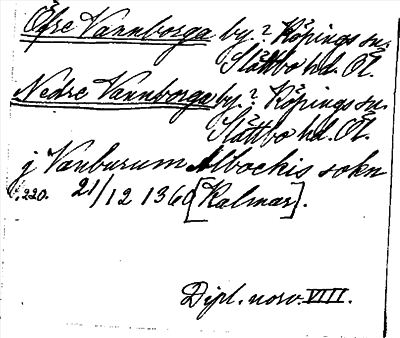 Öfre Vannborga by. ? Köpings sn.
Slättbo hd. Öl.
Nedre Vannborga by. ? Köpings sn.
Slättbo hd. Öl.
j Vanburum Albochis sokn
s. 220. 21/12 1360 [Kalmar].
Dipl. norv. VIII.